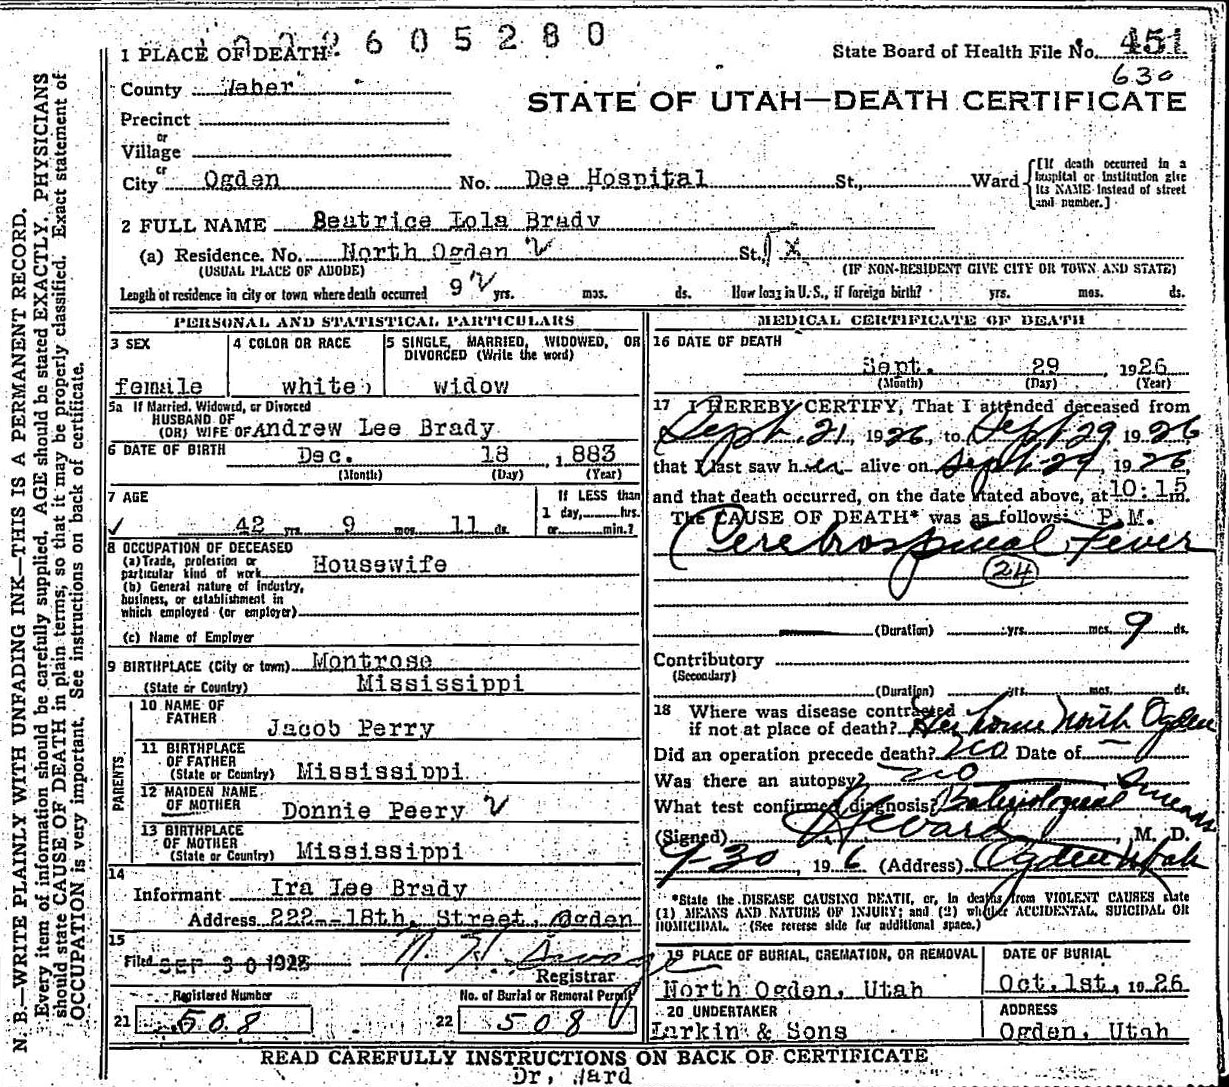 2605280
1 PLACE OF DEATH
State Board of Health File No. 451
630
County Weber
STATE OF UTAH—DEATH CERTIFICATE
Precinct
or
Village
or
City Ogden No. Dee Hospital St., Ward
[If death occurred in a
hospital or institution give
its NAME instead of street
and number.]
2 FULL NAME Beatrice Iola Brady
(a) Residence. No. North Ogden St.
(USUAL PLACE OF ABODE) (IF NON-RESIDENT GIVE CITY OR TOWN AND STATE)
Length of residence in city or town where death occurred 9 yrs. mos. ds. How long in U. S., if foreign birth? yrs. mos. ds.
PERSONAL AND STATISTICAL PARTICULARS
3 SEX 4 COLOR OR RACE 5 SINGLE, MARRIED, WIDOWED, OR
DIVORCED (Write the word)
female white widow
5a If Married, Widowed, or Divorced
HUSBAND OF
(OR) WIFE OF Andrew Lee Brady
6 DATE OF BIRTH Dec. 18 , 1883
(Month) (Day) (Year)
7 AGE If LESS than
1 day, hrs.
42 yrs. 9 mos. 11 ds. or min.?
8 OCCUPATION OF DECEASED
(a) Trade, profession or
particular kind of work Housewife
(b) General nature of industry,
business, or establishment in
which employed (or employer)
(c) Name of Employer
9 BIRTHPLACE (City or town) Montrose
(State or Country) Mississippi
PARENTS
10 NAME OF
FATHER Jacob Perry
11 BIRTHPLACE
OF FATHER
(State or Country) Mississippi
12 MAIDEN NAME
OF MOTHER Donnie Peery
13 BIRTHPLACE
OF MOTHER
(State or Country) Mississippi
14
Informant Ira Lee Brady
Address 222--18th, Street, Ogden
15
Filed SEP 30 1926
Registrar
Registered Number No. of Burial or Removal Permit
21 508 22 508
MEDICAL CERTIFICATE OF DEATH
16 DATE OF DEATH
Sept. 29 , 1926
(Month) (Day) (Year)
17 I HEREBY CERTIFY, That I attended deceased from
Sept. 21, 1926, to Sept 29 1926
that I last saw her alive on Sept-29, 1926,
and that death occurred, on the date stated above, at 10:15 m.
The CAUSE OF DEATH* was as follows: P.M.
Cerebrospinal Fever
24
(Duration) yrs. mos. 9 ds.
Contributory
(Secondary)
(Duration) yrs. mos. ds.
18 Where was disease contracted
if not at place of death? Her home North Ogden
Did an operation precede death? no Date of —
Was there an autopsy? no
What test confirmed diagnosis? Smears
(Signed) M. D.
9-30, 1926 (Address) Ogden Utah
*State the DISEASE CAUSING DEATH, or, in deaths from VIOLENT CAUSES state
(1) MEANS AND NATURE OF INJURY; and (2) whether ACCIDENTAL, SUICIDAL OR
HOMICIDAL. (See reverse side for additional space.)
19 PLACE OF BURIAL, CREMATION, OR REMOVAL DATE OF BURIAL
North Ogden, Utah Oct. 1st, 1926
20 UNDERTAKER ADDRESS
Larkin & Sons Ogden, Utah
READ CAREFULLY INSTRUCTIONS ON BACK OF CERTIFICATE
Dr. Ward
N. B.—WRITE PLAINLY WITH UNFADING INK—THIS IS A PERMANENT RECORD.
Every item of information should be carefully supplied. AGE should be stated EXACTLY. PHYSICIANS
should state CAUSE OF DEATH in plain terms, so that it may be properly classified. Exact statement of
OCCUPATION is very important. See instructions on back of certificate.